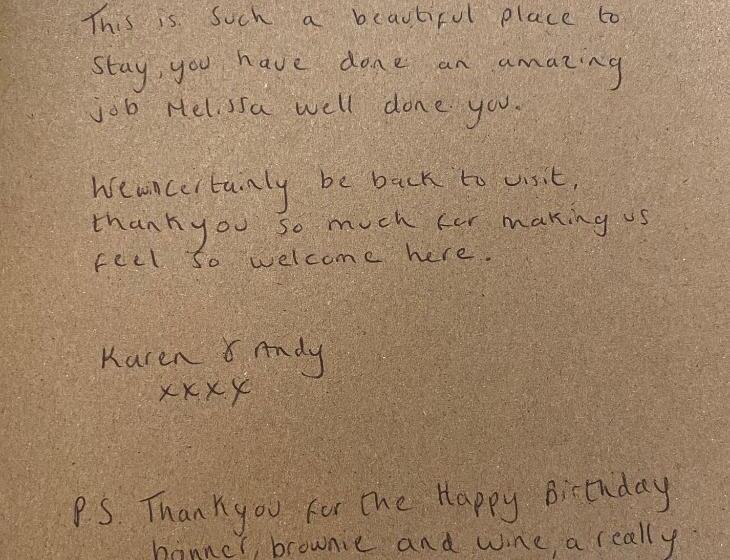 This is such a beautiful place to
stay, you have done an amazing
job Melissa well done you.
We certainly be back to visit,
thankyou so much for making us
feel so welcome here.
Karen & Andy
xxxx
P.S. Thankyou for the Happy Birthday
banner, brownie and wine, a really